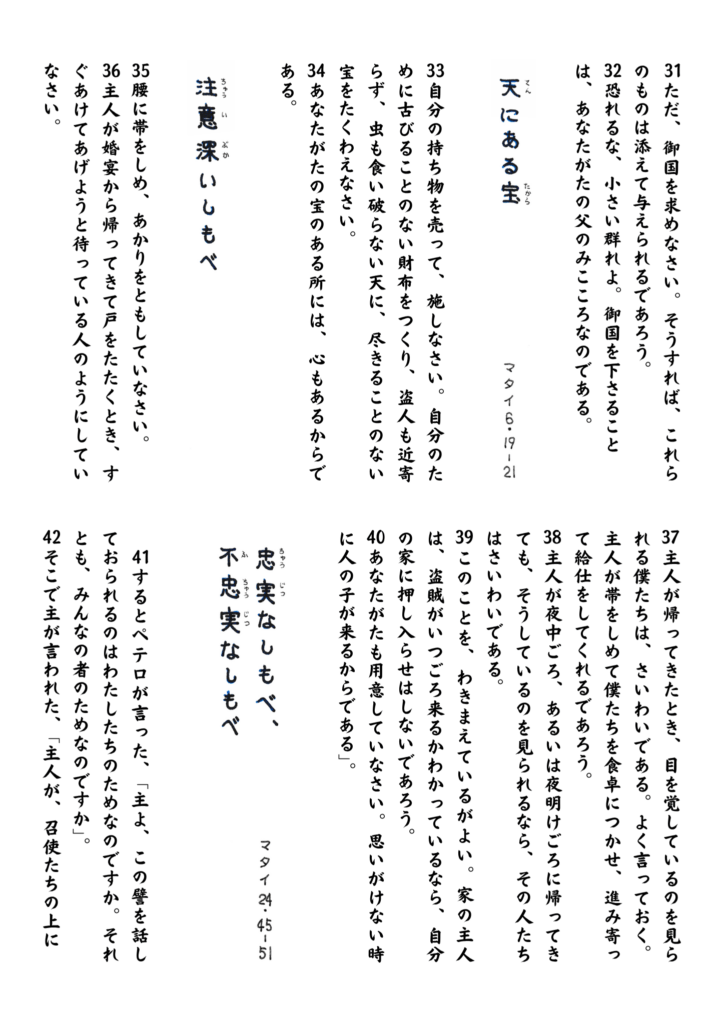 31ただ、御国を求めなさい。そうすれば、これら
のものは添えて与えられるであろう。
32恐れるな、小さい群れよ。御国を下さること
は、あなたがたの父のみこころなのである。
天にある宝
てん
たから
マタイ6・19-21
33自分の持ち物を売って、施しなさい。自分のた
めに古びることのない財布をつくり、盗人も近寄
らず、虫も食い破らない天に、尽きることのない
宝をたくわえなさい。
34あなたがたの宝のある所には、心もあるからで
ある。
注意深いしもべ
ちゅうい
ぶか
35腰に帯をしめ、あかりをともしていなさい。
36主人が婚宴から帰ってきて戸をたたくとき、す
ぐあけてあげようと待っている人のようにしてい
なさい。
37主人が帰ってきたとき、目を覚しているのを見ら
れる僕たちは、さいわいである。よく言っておく。
主人が帯をしめて僕たちを食卓につかせ、進み寄っ
て給仕をしてくれるであろう。
38主人が夜中ごろ、あるいは夜明けごろに帰ってき
ても、そうしているのを見られるなら、その人たち
はさいわいである。
39このことを、わきまえているがよい。家の主人
は、盗賊がいつごろ来るかわかっているなら、自分
の家に押し入らせはしないであろう。
40あなたがたも用意していなさい。思いがけない時
に人の子が来るからである」。
忠実なしもべ、
ちゅうじつ
不忠実なしもべ
ふちゅうじつ
マタイ24・45-51
41するとペテロが言った、「主よ、この譬を話し
ておられるのはわたしたちのためなのですか。それ
とも、みんなの者のためなのですか」。
42そこで主が言われた、「主人が、召使たちの上に